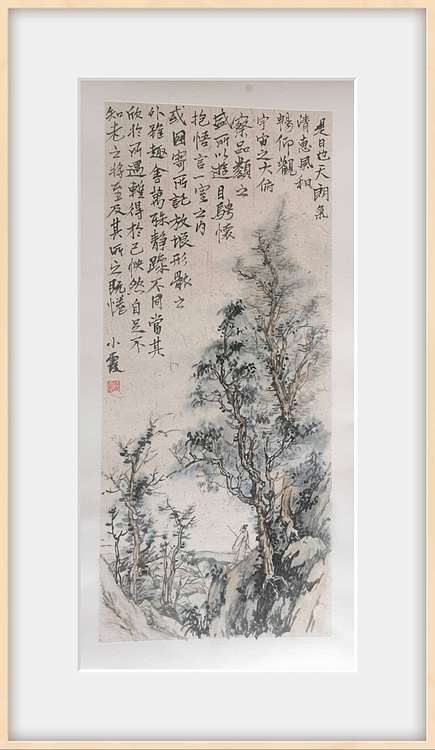 是日也天朗氣
清惠風和
暢仰觀
宇宙之大俯
察品類之
盛所以遊目騁懷
抱悟言一室之内
或因寄所託放浪形骸之
外雖趣舍萬殊靜躁不同當其
欣於所遇輒得於己快然自足不
知老之將至及其所之既惓
小霞